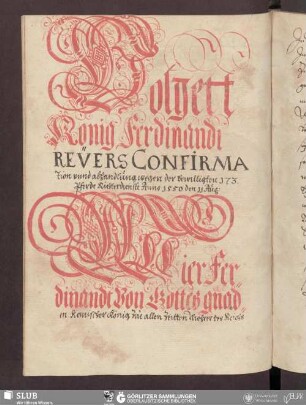 Volgett
König Ferdinandi
REVERS CONFIRMA
tion vnnd abhandlung wegen der bewilligten 173
Pferde Ritterdienste Anno 1550 den 11 Aug:
Wier Fer
dinandt Von Gottes gnad
in Römischer König zue allen Zeitten Mehrer des Reichs
SLUB
Wir führen Wissen.
GÖRLITZER SAMMLUNGEN
OBERLAUSITZISCHE BIBLIOTHEK